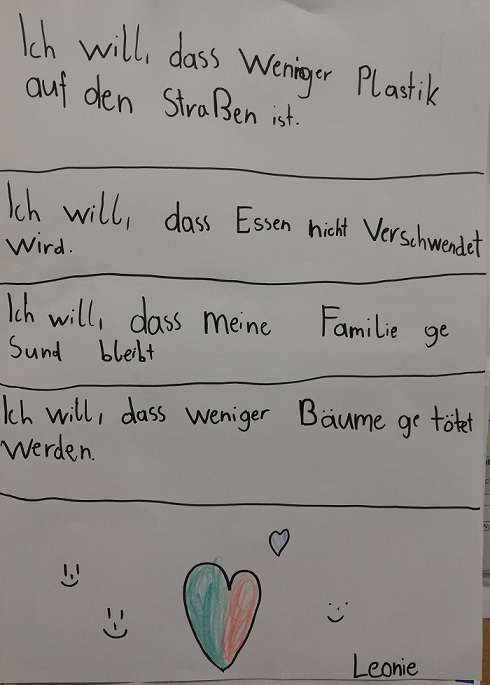 Ich will, dass weniger Plastik
auf den Straßen ist.
Ich will, dass Essen nicht Verschwendet
wird.
Ich will, dass meine Familie ge
sund bleibt
Ich will, dass weniger Bäume ge tötet
werden.
Leonie